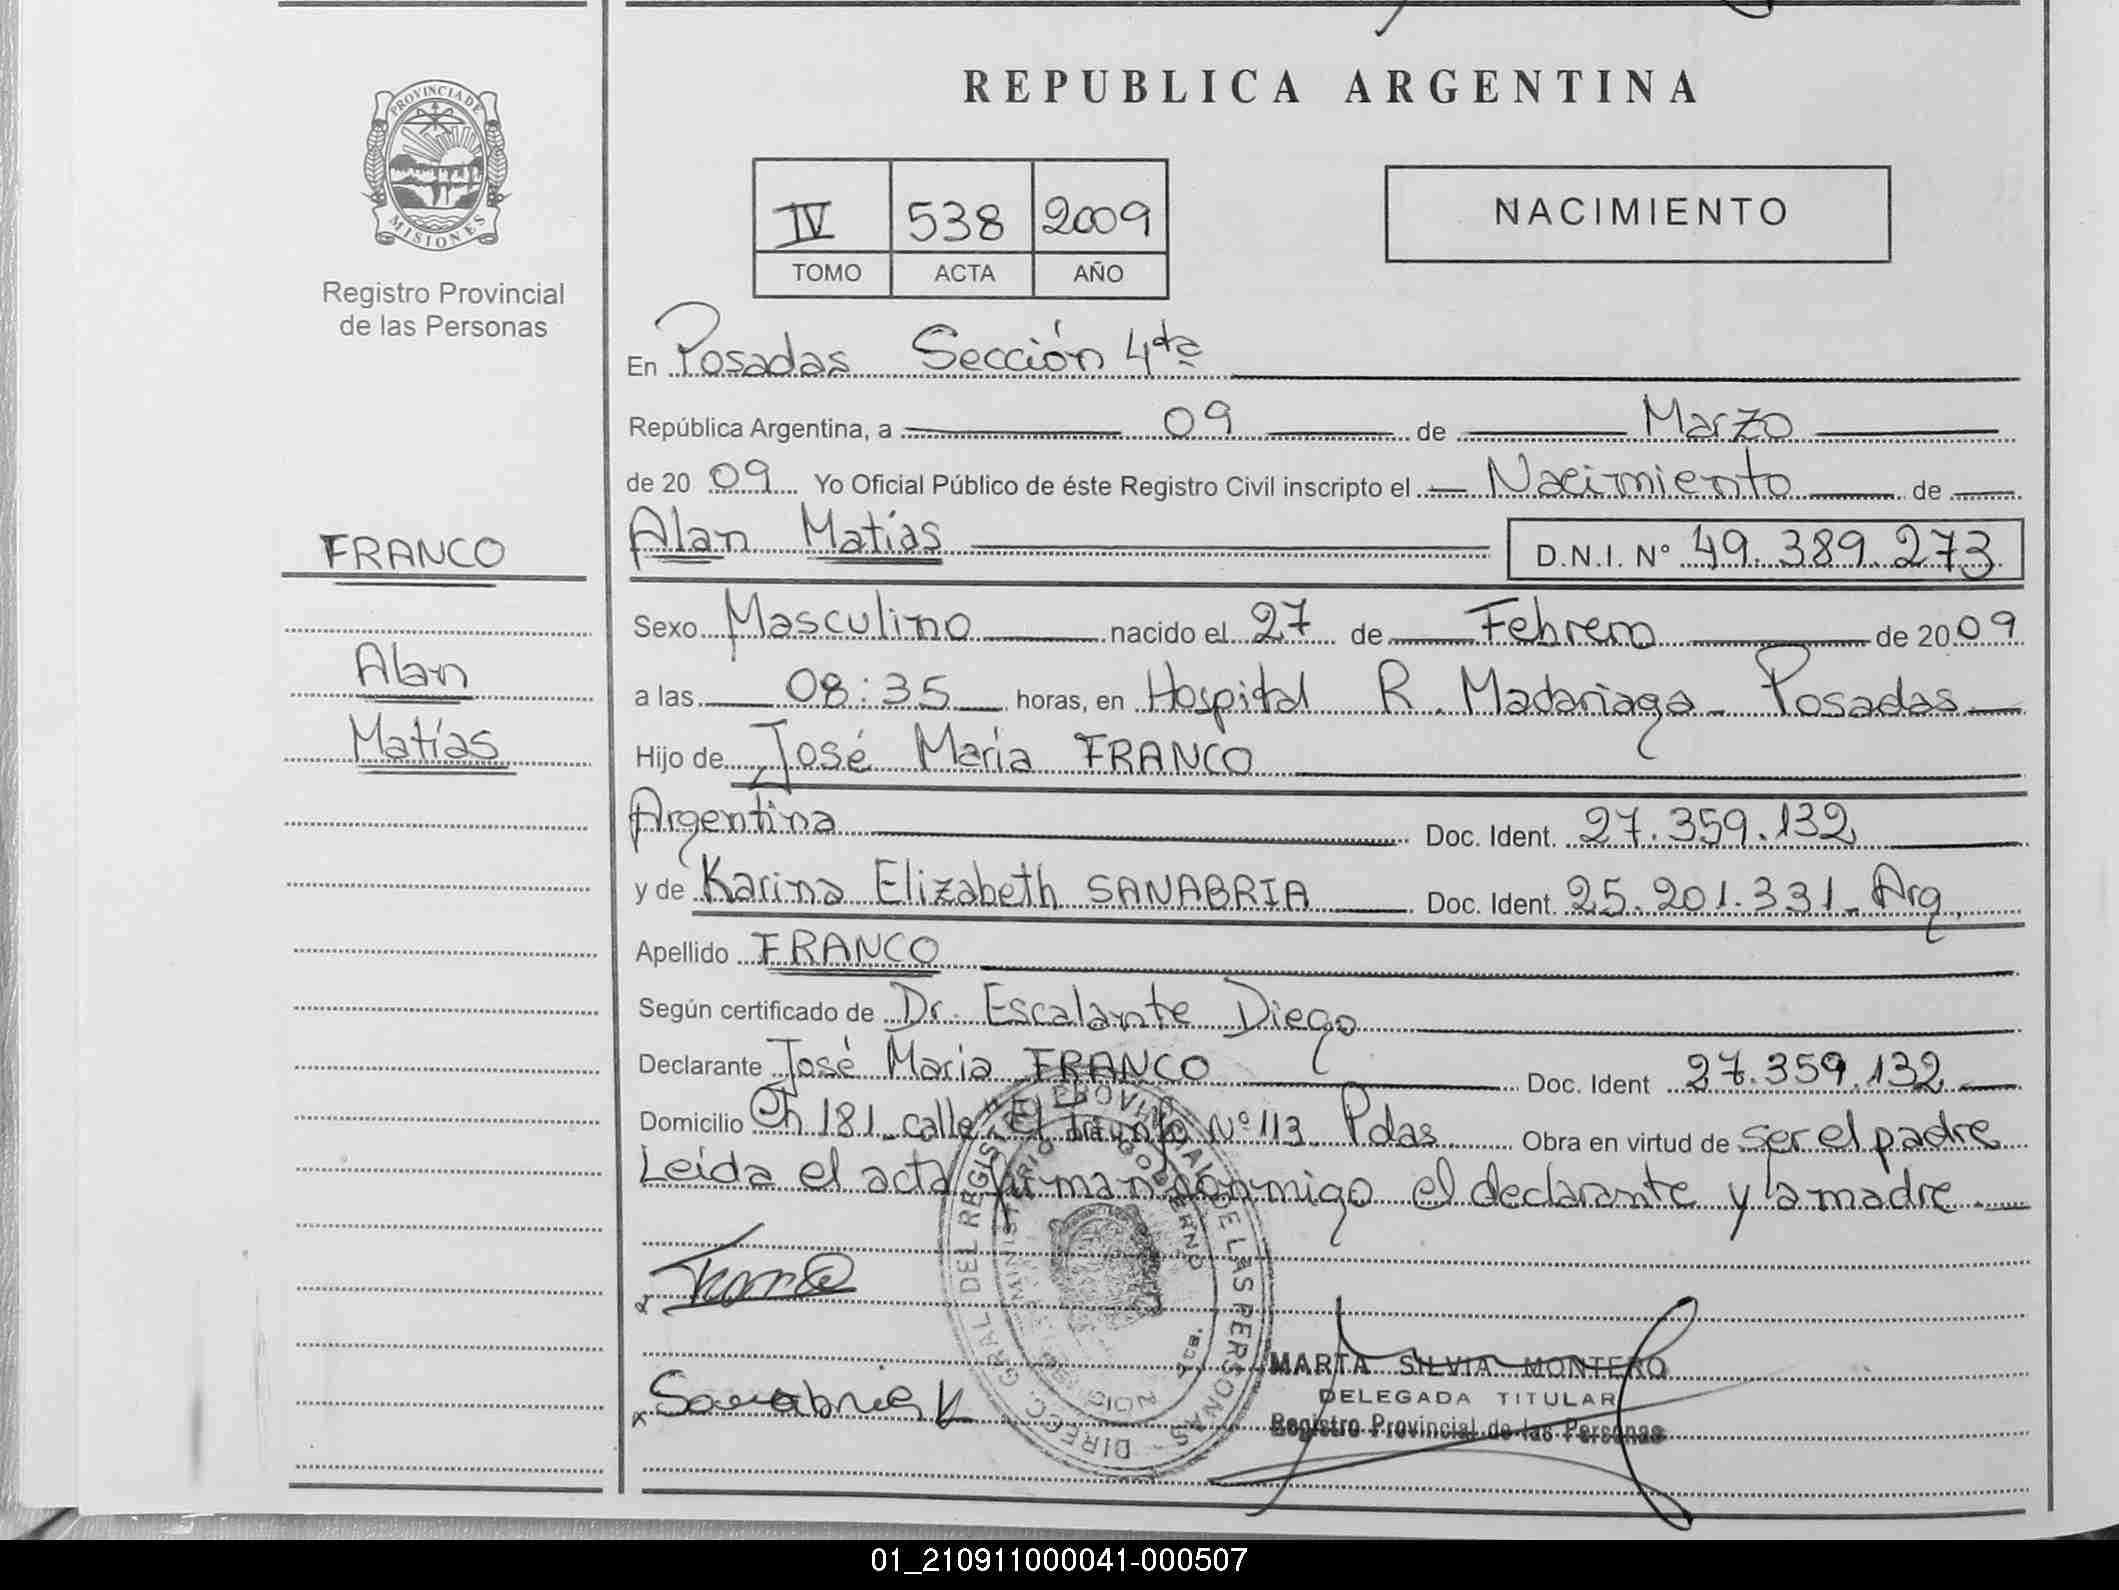 REPUBLICA ARGENTINA
PROVINCIA DE
MISIONES
Registro Provincial
de las Personas
IV 538 2009
TOMO ACTA AÑO
NACIMIENTO
En Posadas Sección 4ta
República Argentina, a 09 de Marzo
de 20 09 Yo Oficial Público de éste Registro Civil inscripto el Nacimiento de
FRANCO
Alan
Matías
Alan Matías D.N.I. N° 49.389.273
Sexo Masculino nacido el 27 de Febrero de 20 09
a las 08:35 horas, en Hospital R. Madariaga - Posadas
Hijo de José Maria FRANCO
Argentina Doc. Ident. 27.359.132
y de Karina Elizabeth SANABRIA Doc. Ident. 25.201.331 - Arg.
Apellido FRANCO
Según certificado de Dr. Escalante Diego
Declarante José Maria FRANCO Doc. Ident 27.359.132
Domicilio Ch 181 - calle El Triunfo N° 113 Pdas. Obra en virtud de ser el padre
Leida el acta firman conmigo el declarante y la madre.
Franco
Sanabria K
DIRECC. GRAL DEL REGISTRO PROVINCIAL DE LAS PERSONAS
MINISTERIO GOBIERNO
MARTA SILVIA MONTERO
DELEGADA TITULAR
Registro Provincial de las Personas
01_210911000041-000507